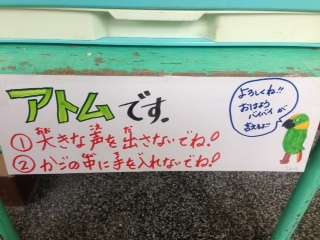 アトムです。
①大きな声を出さないでね!
②カゴの中に手を入れないでね!
よろしくね!!
おはよう
バイバイが
言えるよ!!